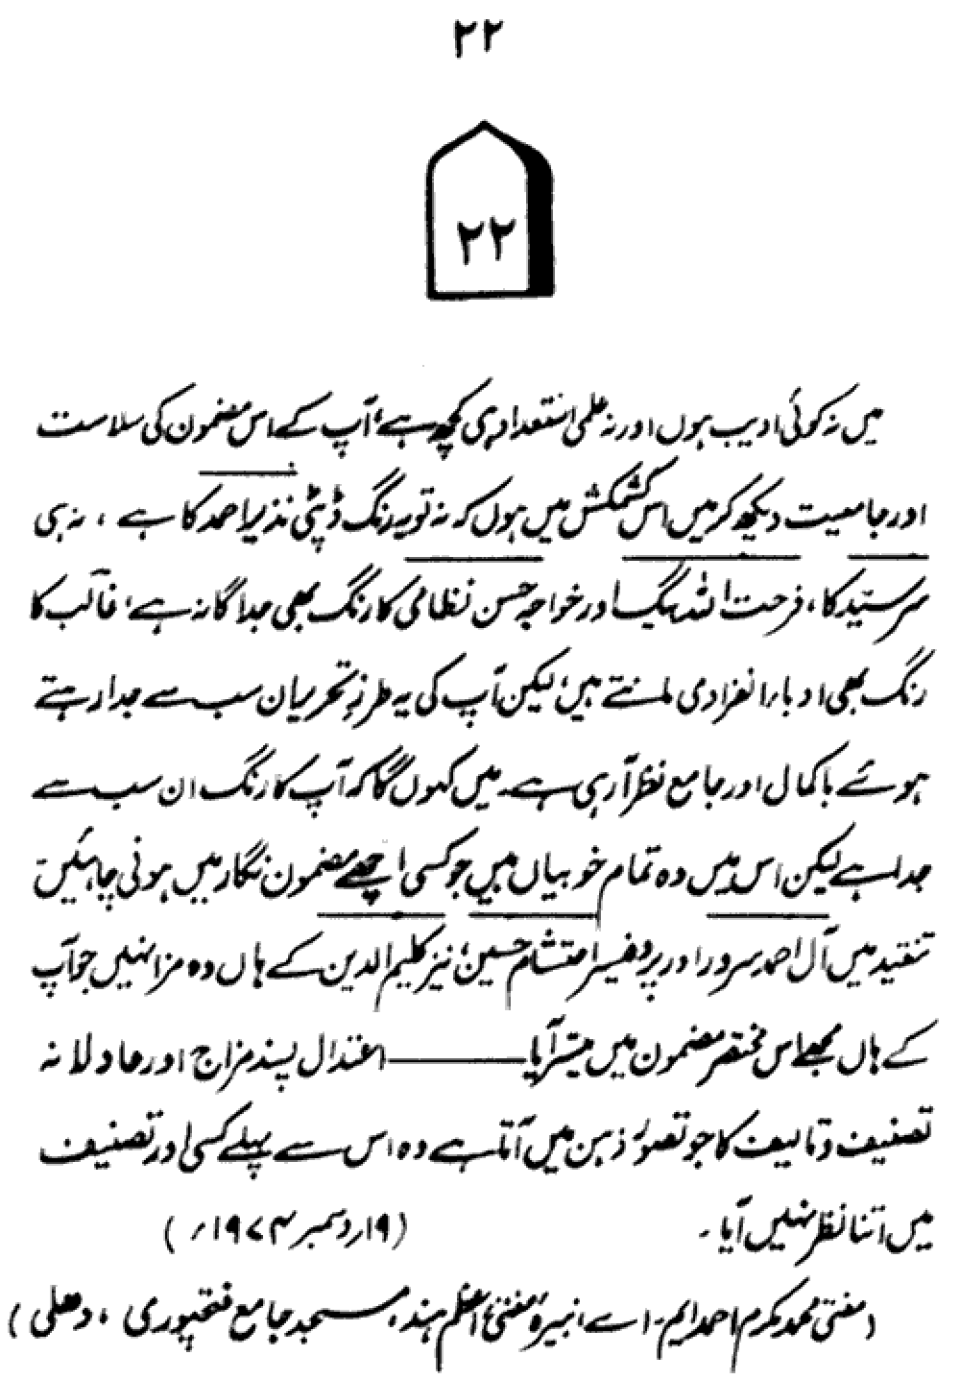 ۲۲
۲۲
میں نہ کوئی ادیب ہوں اور نہ علمی استعداد ہی کچھ ہے، آپ کے اس مضمون کی سلاست
اور جامعیت دیکھ کر میں اس کشمکش میں ہوں کہ نہ تو یہ رنگ ڈپٹی نذیر احمد کا ہے ، نہ ہی
سرسیّد کا ، فرحت اللہ بیگ اور خواجہ حسن نظامی کا رنگ بھی جداگانہ ہے، غالب کا
رنگ بھی ادبار انفرادی مانتے ہیں، لیکن آپ کی یہ طرزِ تحریر ان سب سے جدا رہتے
ہوئے باکمال اور جامع نظر آرہی ہے۔ میں کہوں گا کہ آپ کا رنگ ان سب سے
جدا ہے لیکن اس میں وہ تمام خوبیاں ہیں جو کسی اچھے مضمون نگار میں ہونی چاہئیں۔
تنقید میں آل احمد سرور اور پروفیسر احتشام حسین، نیز کلیم الدین کے ہاں وہ مزا نہیں جو آپ
کے ہاں مجھے اس مختصر مضمون میں میسّر آیا ——— اعتدال پسند مزاج اور عادلانہ
تصنیف و تالیف کا جو تصوّر ذہن میں آتا ہے وہ اس سے پہلے کسی اور تصنیف
میں اتنا نظر نہیں آیا۔ (۱۹؍ دسمبر ۱۹۷۴ء)
(مفتی محمد مکرم احمد ایم۔ اے، نبیرۂ مفتیٔ اعظم ہند، مسجد جامع فتحپوری ، دھلی)